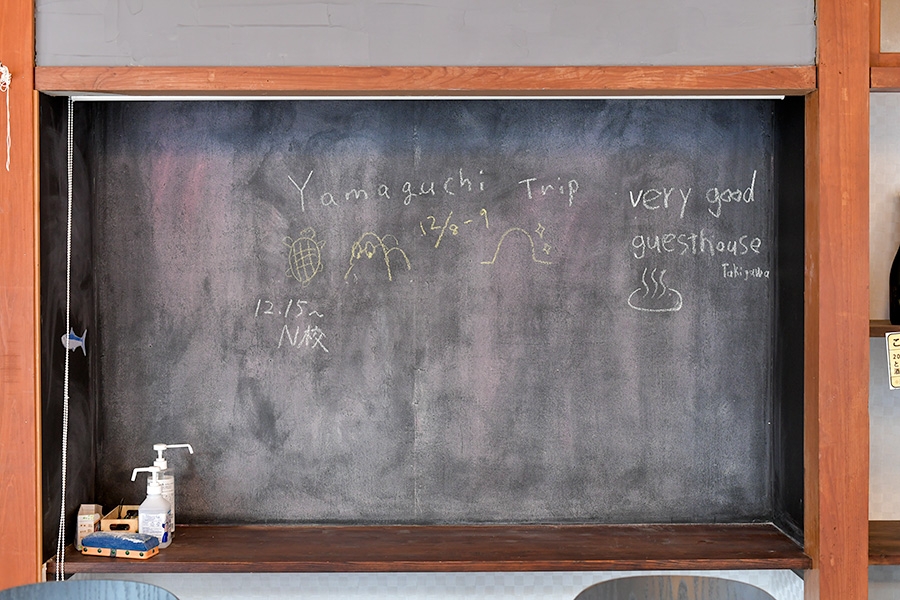 Yamaguchi Trip
12/8-9
12.15~
N校
very good
guesthouse
Takigawa